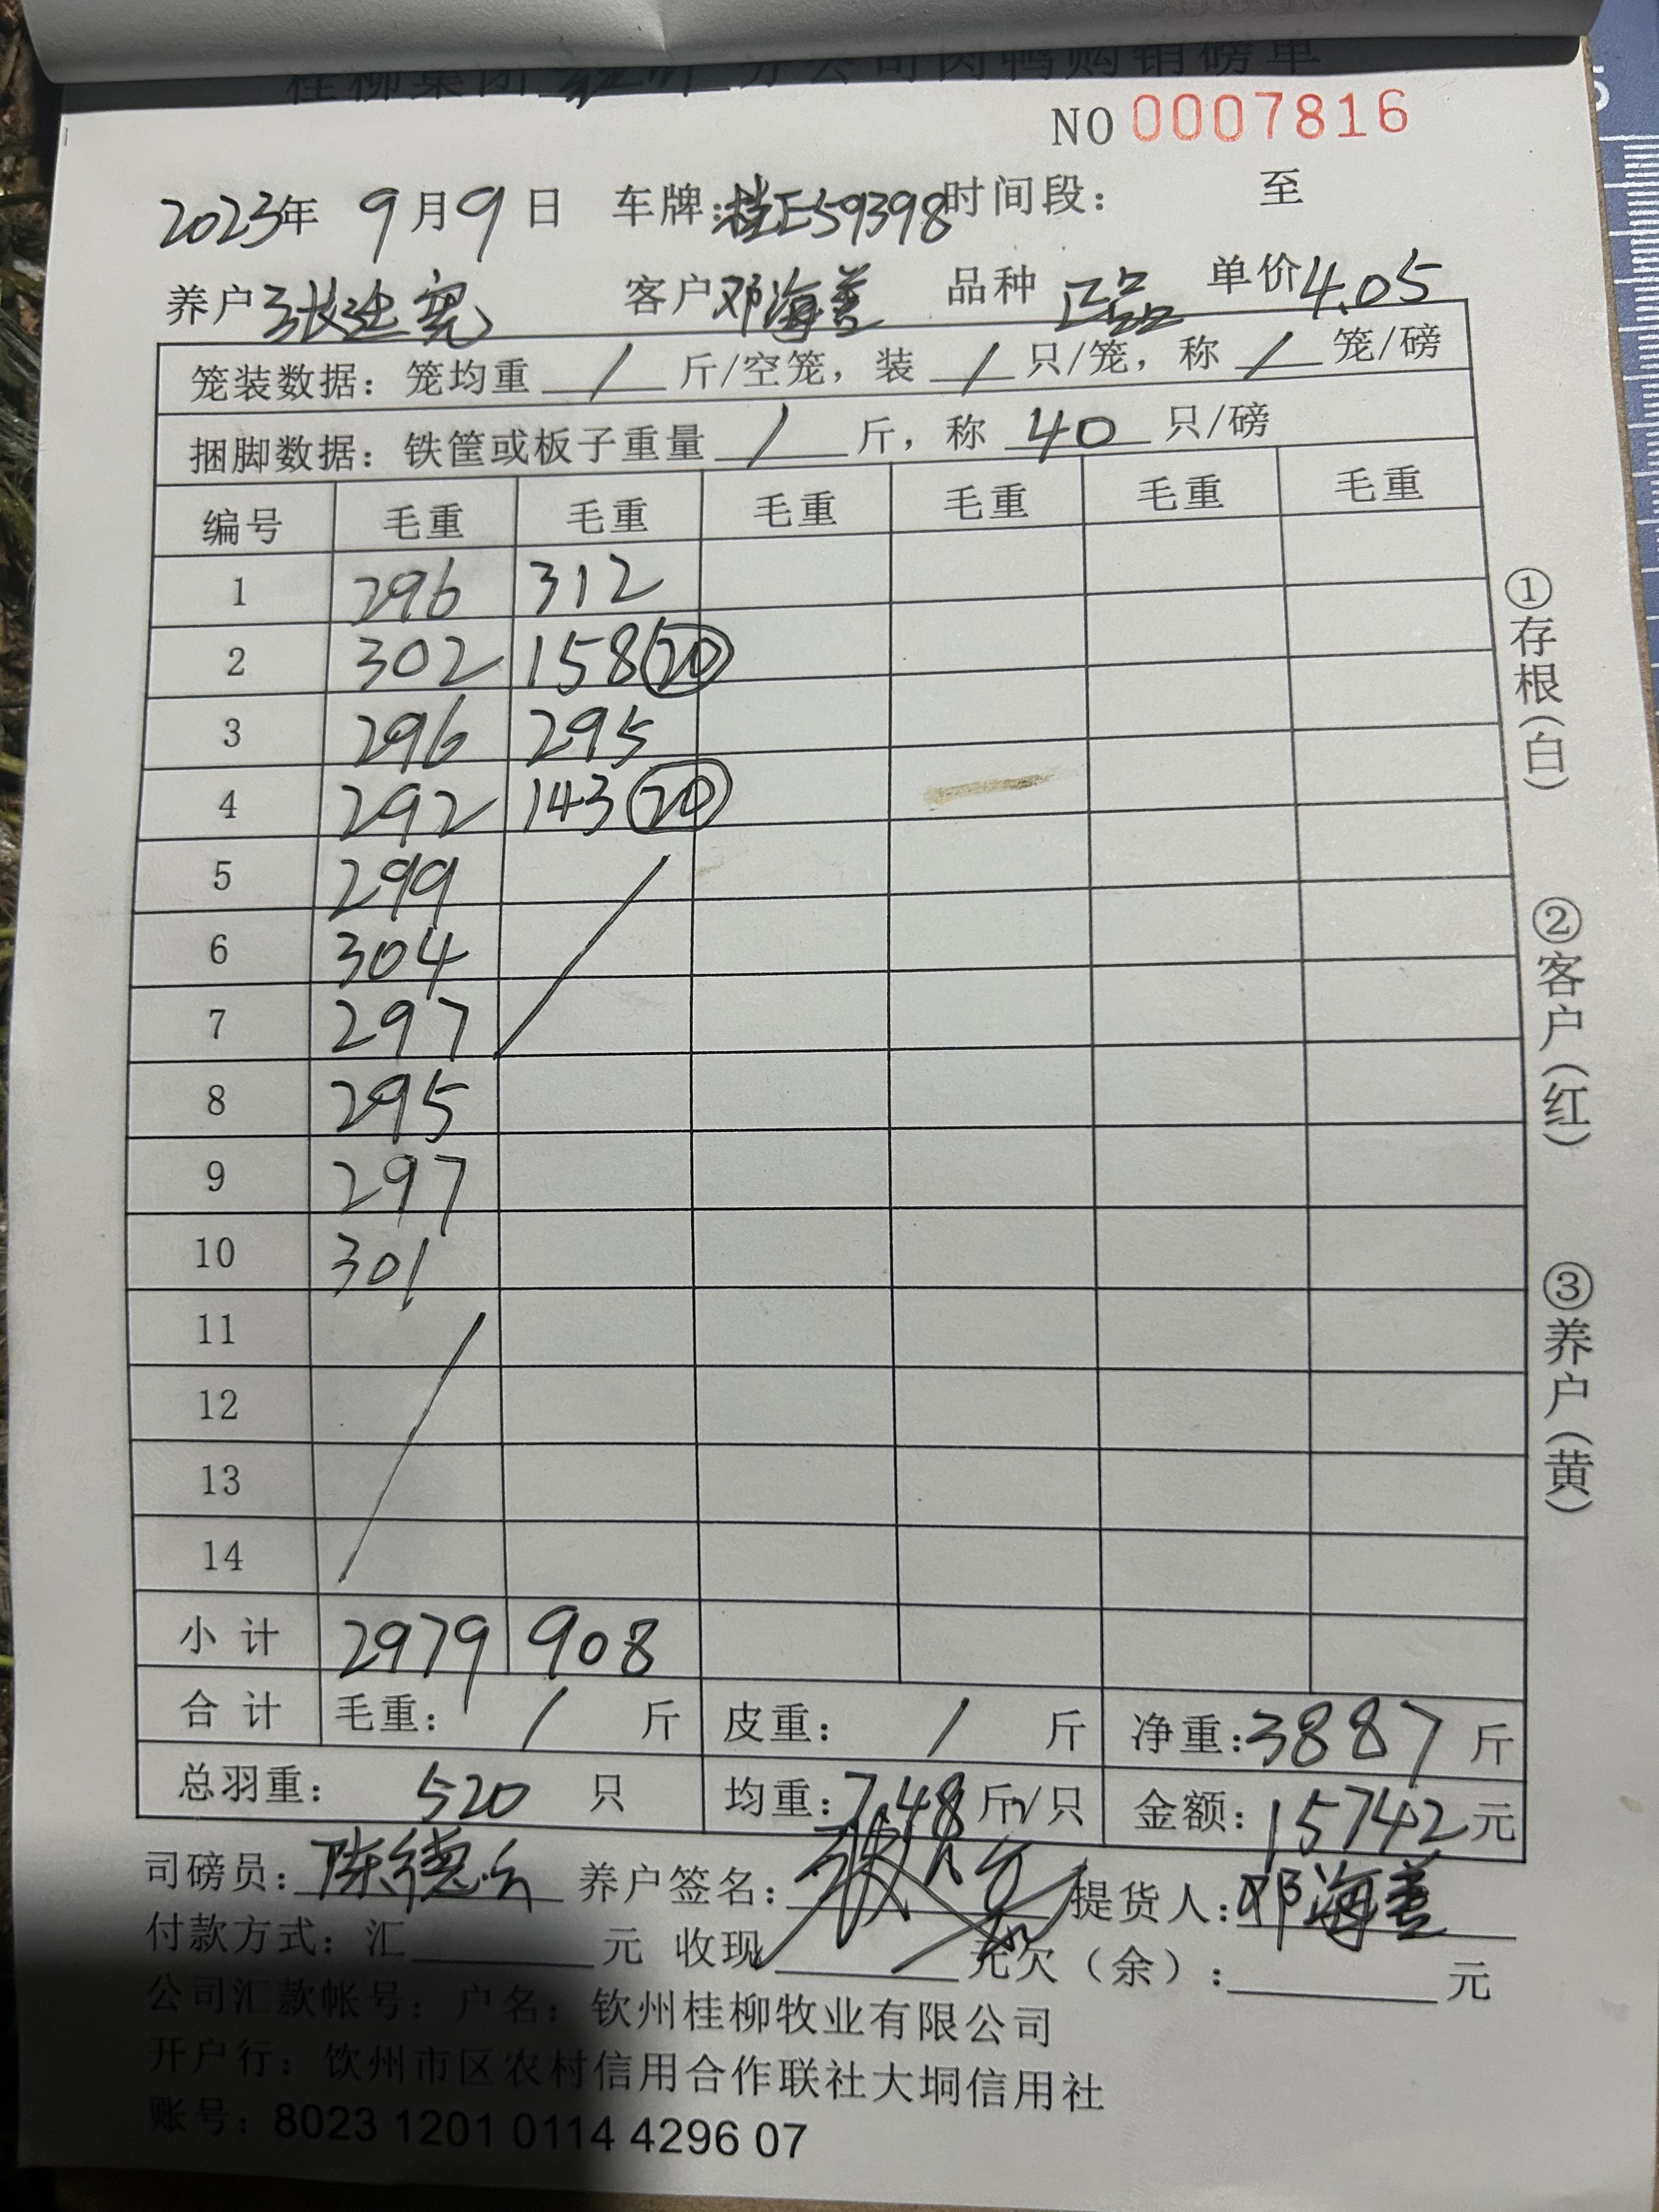 桂柳集团 分公司肉鸭购销磅单
NO 0007816
2023年 9月9日 车牌:桂E59398 时间段: 至
养户 张建宽 客户 邓海善 品种 正品 单价 4.05
笼装数据: 笼均重 / 斤/空笼, 装 / 只/笼, 称 / 笼/磅
捆脚数据: 铁筐或板子重量 / 斤, 称 40 只/磅
编号 毛重 毛重 毛重 毛重 毛重 毛重
1 296 312
2 302 158 (20)
3 296 295
4 292 143 (20)
5 299
6 304
7 297
8 295
9 297
10 301
11
12
13
14
小计 2979 908
合计 毛重: / 斤 皮重: / 斤 净重:3887 斤
总羽重: 520 只 均重:7.48 斤/只 金额:15742元
司磅员: 陈德 养户签名: 张 提货人:邓海善
付款方式: 汇 元 收现 元欠(余): 元
公司汇款帐号: 户名: 钦州桂柳牧业有限公司
开户行: 钦州市区农村信用合作联社大垌信用社
账号: 8023 1201 0114 4296 07
①存根(白)
②客户(红)
③养户(黄)